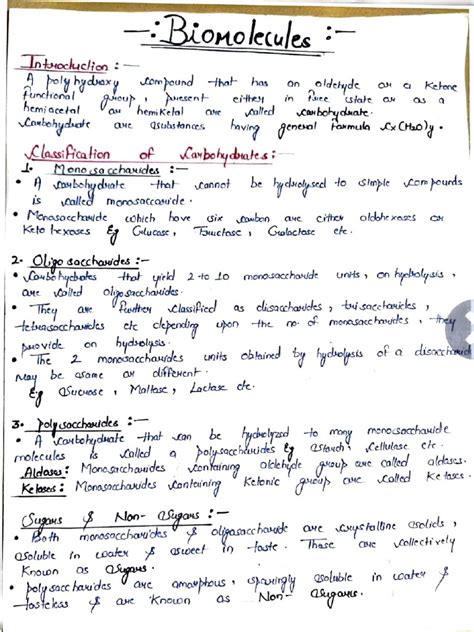 —: Biomolecules :—
Introduction :—
A polyhydroxy compound that has an aldehyde or a Ketone
functional group, present either in free state or as a
hemiacetal or hemiketal are called carbohydrate.
Carbohydrate are substances having general formula Cx(H2O)y.
Classification of Carbohydrates :—
1. Monosaccharides :—
• A carbohydrate that cannot be hydrolysed to simple compounds
is called monosaccaride.
• Monosaccharide which have six carbon are either aldohexoses or
Keto hexoses Eg Glucose, Fructose, Galactose etc.
2. Oligosaccharides :—
• Carbohydrates that yield 2 to 10 monosaccharide units, on hydrolysis,
are called oligosaccharides.
• They are further classified as disaccharides, trisaccharides,
tetrasaccharides etc depending upon the no. of monosaccharides, they
provide on hydrolysis.
• The 2 monosaccharides units obtained by hydrolysis of a disaccharid
may be same or different.
Eg Sucrose, Maltose, Lactose etc.
3. Polysaccharides :—
• A carbohydrate that can be hydrolyzed to many monosaccharide
molecules is called a polysaccharides Eg Starch, Cellulase etc.
Aldoses: Monosaccharides containing aldehyde group are called aldoses.
Ketoses: Monosaccharides containing Ketonic group are called Ketoses.
Sugars & Non-Sugars :—
• Both monosaccharides & oligosaccharide are crystalline solids,
soluble in water & sweet in taste. These are collectively
Known as Sugars.
• polysaccharides are amorphous, sparingly soluble in water &
tasteless & are Known as Non-Sugars.